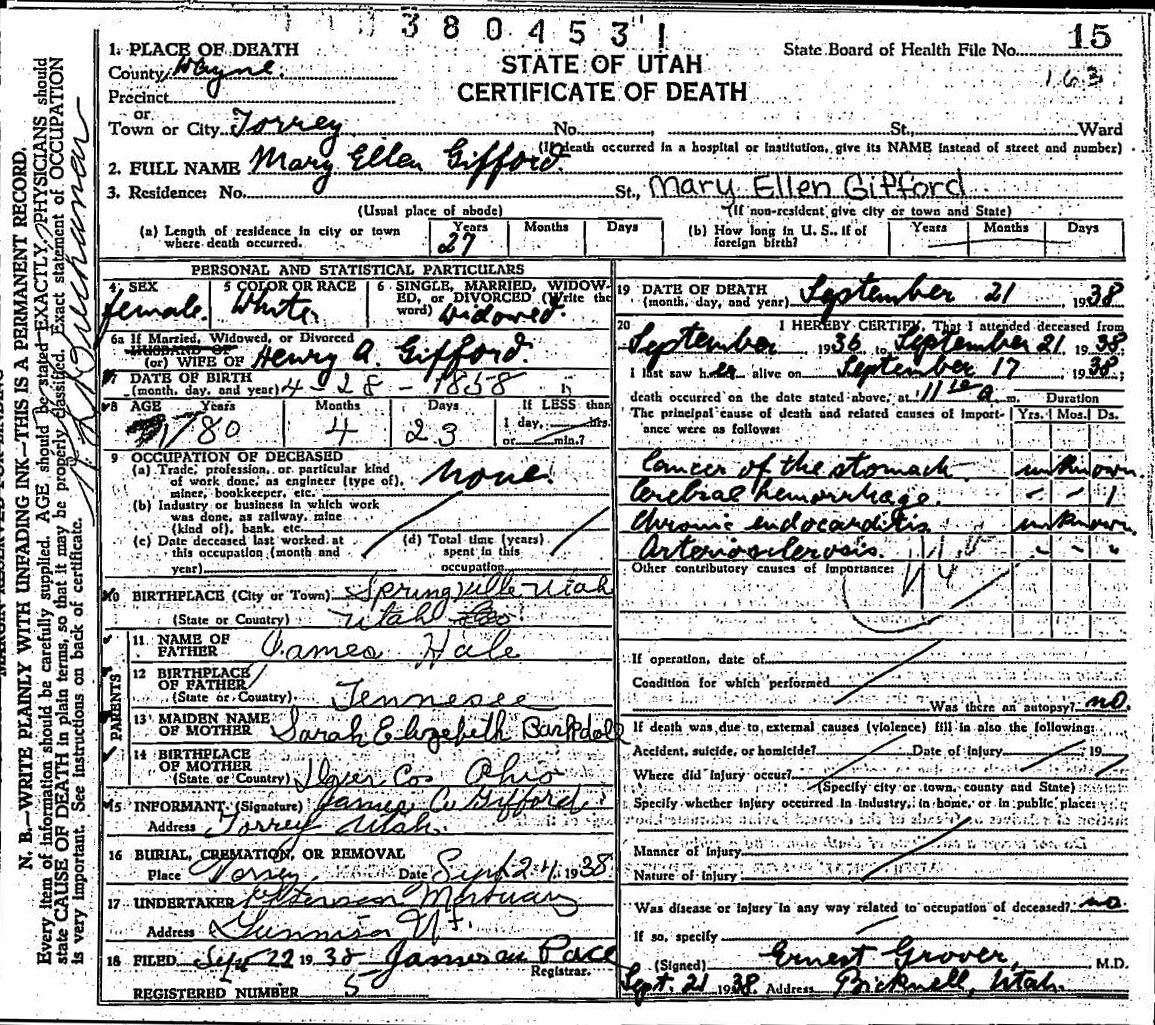 380453 1
1. PLACE OF DEATH
State Board of Health File No. 15
STATE OF UTAH
163
County Wayne.
CERTIFICATE OF DEATH
Precinct
or
Town or City Torrey No. , St., Ward
(If death occurred in a hospital or institution, give its NAME instead of street and number)
2. FULL NAME Mary Ellen Gifford.
3. Residence: No. St., Mary Ellen Gifford
(Usual place of abode) (If non-resident give city or town and State)
(a) Length of residence in city or town where death occurred. Years 27 Months Days
(b) How long in U. S., if of foreign birth? Years Months Days
PERSONAL AND STATISTICAL PARTICULARS
4 SEX female.
5 COLOR OR RACE White
6 SINGLE, MARRIED, WIDOWED, or DIVORCED (Write the word) Widowed.
6a If Married, Widowed, or Divorced
HUSBAND OF
(or) WIFE OF Henry A. Gifford.
7 DATE OF BIRTH
(month, day, and year) 4-28-1858
8 AGE Years 80 Months 4 Days 23 If LESS than 1 day, hrs. or min.?
9 OCCUPATION OF DECEASED
(a) Trade, profession, or particular kind
of work done, as engineer (type of),
miner, bookkeeper, etc. none.
(b) Industry or business in which work
was done, as railway, mine
(kind of), bank, etc.
(c) Date deceased last worked at
this occupation (month and
year)
(d) Total time (years)
spent in this
occupation
10 BIRTHPLACE (City or Town) Springville Utah
(State or Country) Utah
PARENTS
11 NAME OF FATHER James Hale
12 BIRTHPLACE OF FATHER
(State or Country) Tennesee
13 MAIDEN NAME OF MOTHER Sarah Elizebeth
14 BIRTHPLACE OF MOTHER
(State or Country) Co. Ohio
15 INFORMANT (Signature) James C. Gifford
Address Torrey Utah.
16 BURIAL, CREMATION, OR REMOVAL
Place Torrey Date Sept 24, 1938
17 UNDERTAKER Mortuary
Address Gunnison Ut.
18 FILED Sept 22 1938 Pace
Registrar.
REGISTERED NUMBER 5
19 DATE OF DEATH
(month, day, and year) September 21 1938
20 I HEREBY CERTIFY, That I attended deceased from
September 1936 to September 21, 1938
I last saw her alive on September 17 1938;
death occurred on the date stated above, at 11 a m.
The principal cause of death and related causes of importance were as follows: Duration Yrs. Mos. Ds.
Cancer of the stomach unknown.
Cerebral hemorrhage - - 1
Chronic endocarditis unknown.
Arteriosclerosis. " " "
Other contributory causes of importance:
If operation, date of
Condition for which performed
Was there an autopsy? no.
If death was due to external causes (violence) fill in also the following:
Accident, suicide, or homicide? Date of injury 19
Where did injury occur?
(Specify city or town, county and State)
Specify whether injury occurred in industry, in home, or in public place:
Manner of Injury
Nature of Injury
Was disease or injury in any way related to occupation of deceased? no.
If so, specify
(Signed) Ernest Grover, M.D.
Sept. 21 1938 Address Bicknell, Utah.
N. B.—WRITE PLAINLY WITH UNFADING INK—THIS IS A PERMANENT RECORD.
Every item of information should be carefully supplied. AGE should be stated EXACTLY. PHYSICIANS should
state CAUSE OF DEATH in plain terms, so that it may be properly classified. Exact statement of OCCUPATION
is very important. See instructions on back of certificate.